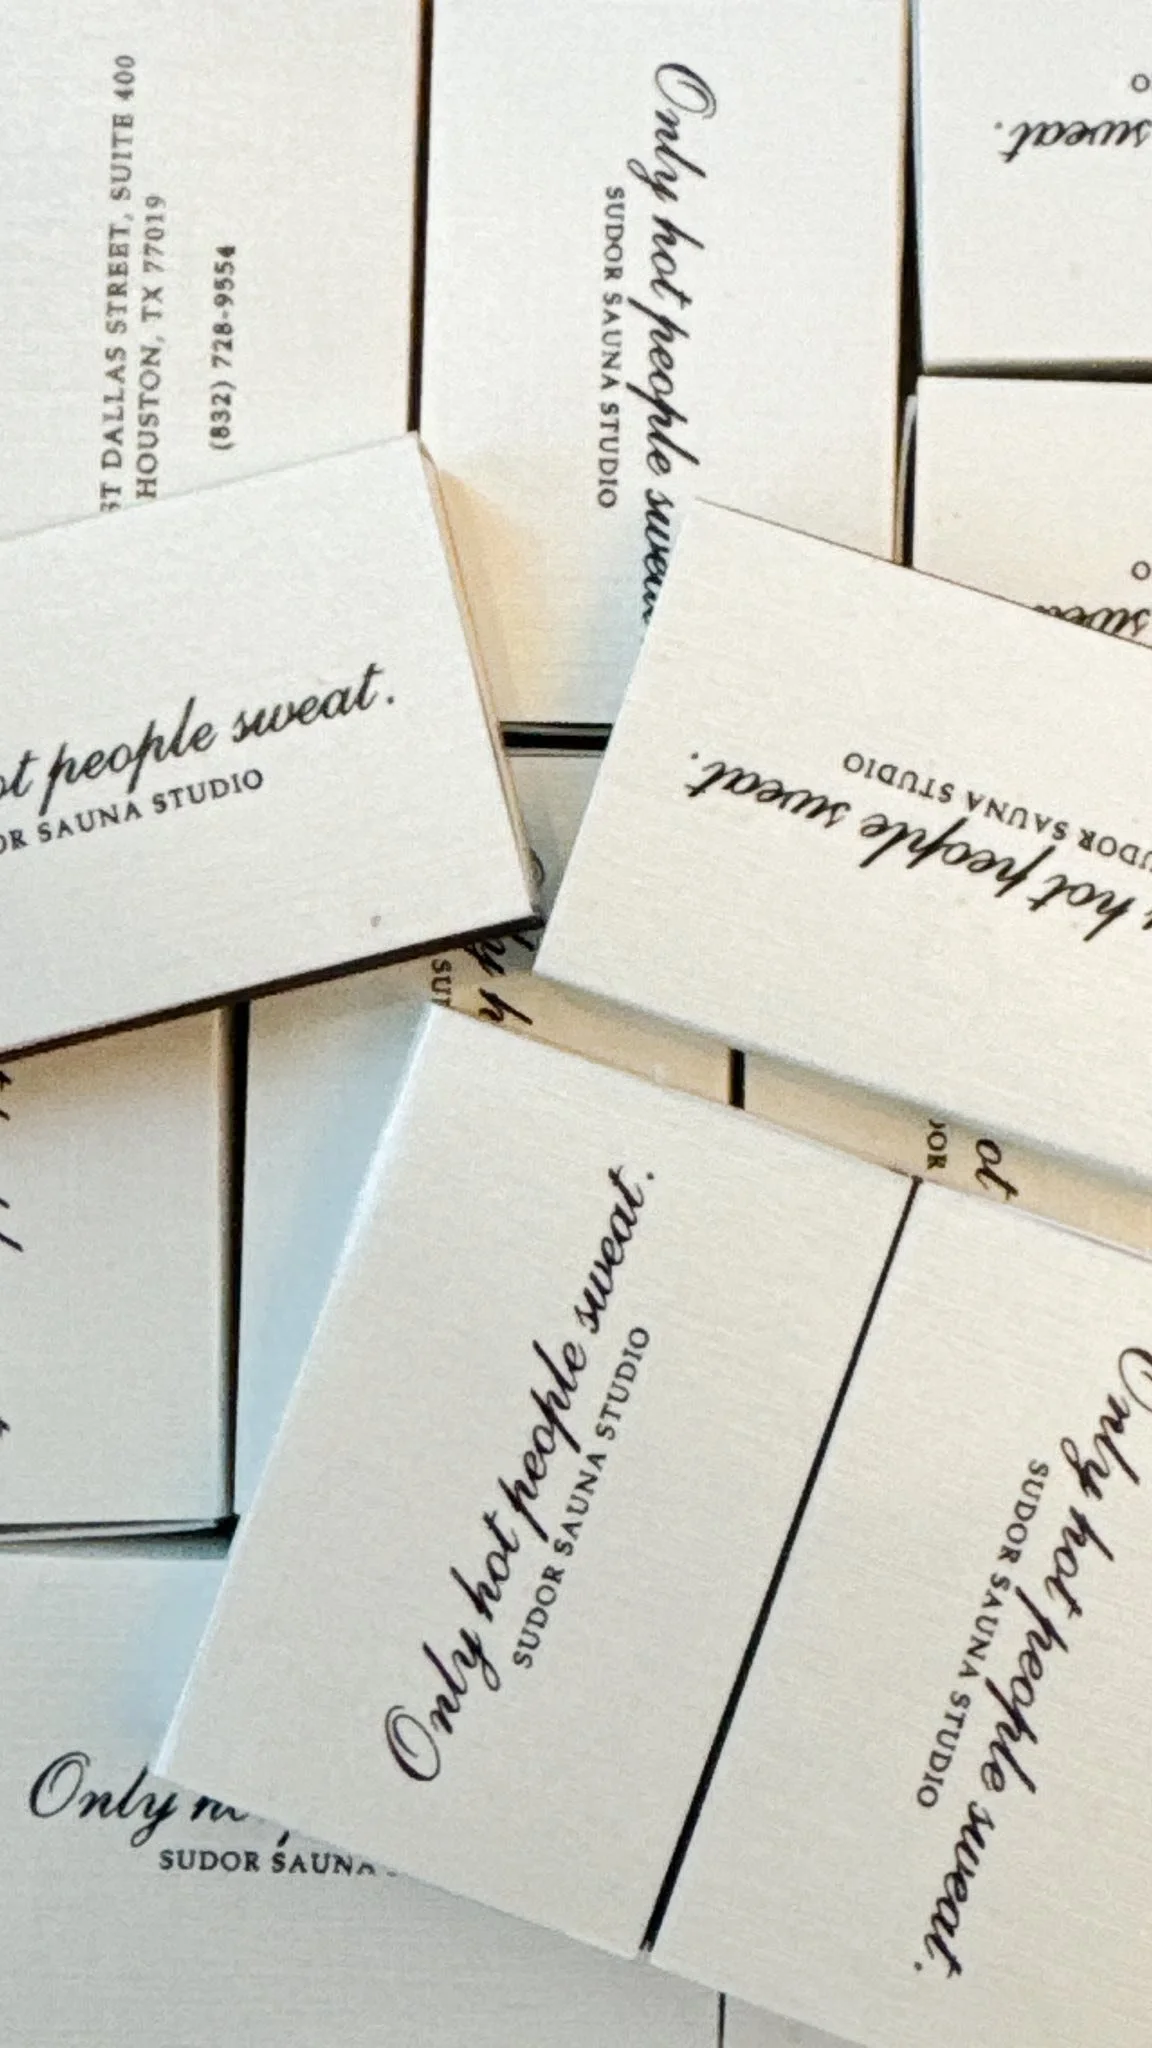 ST DALLAS STREET, SUITE 400
HOUSTON, TX 77019
(832) 728-9554
Only hot people
SUDOR SAUNA STUDIO
sweat.
O
O
people sweat.
SAUNA STUDIO
hot people sweat.
SAUNA STUDIO
Only hot people sweat.
SUDOR SAUNA STUDIO
Only hot people sweat.
SUDOR SAUNA STUDIO
Only
SUDOR